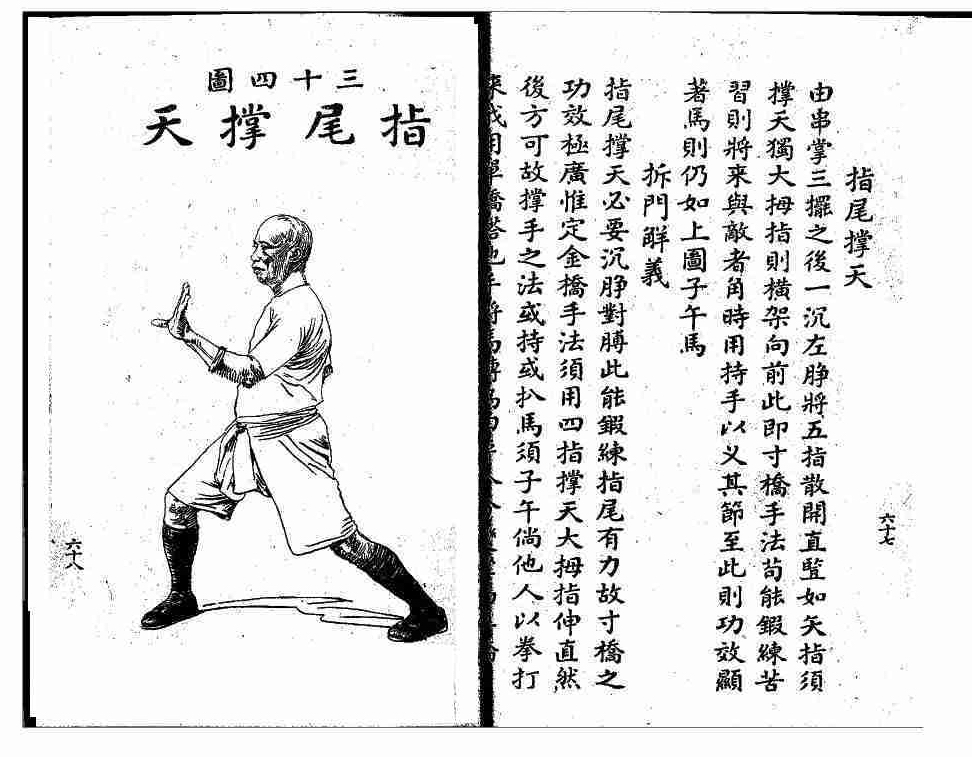 指尾撑天
由串掌三擺之後一沉左睁將五指散開直竪如矢指須
撑天獨大拇指則橫架向前此即寸橋手法苟能鍜練苦
習則將來與敵者角時用持手以义其節至此則功效顯
著馬則仍如上圖子午馬
拆門觧義
指尾撑天必要沉睁對膊此能鍜練指尾有力故寸橋之
功效極廣惟定金橋手法須用四指撑天大拇指伸直然
後方可故撑手之法或持或扒馬須子午倘他人以拳打
六十七
三十四圖
指尾撑天
六十八